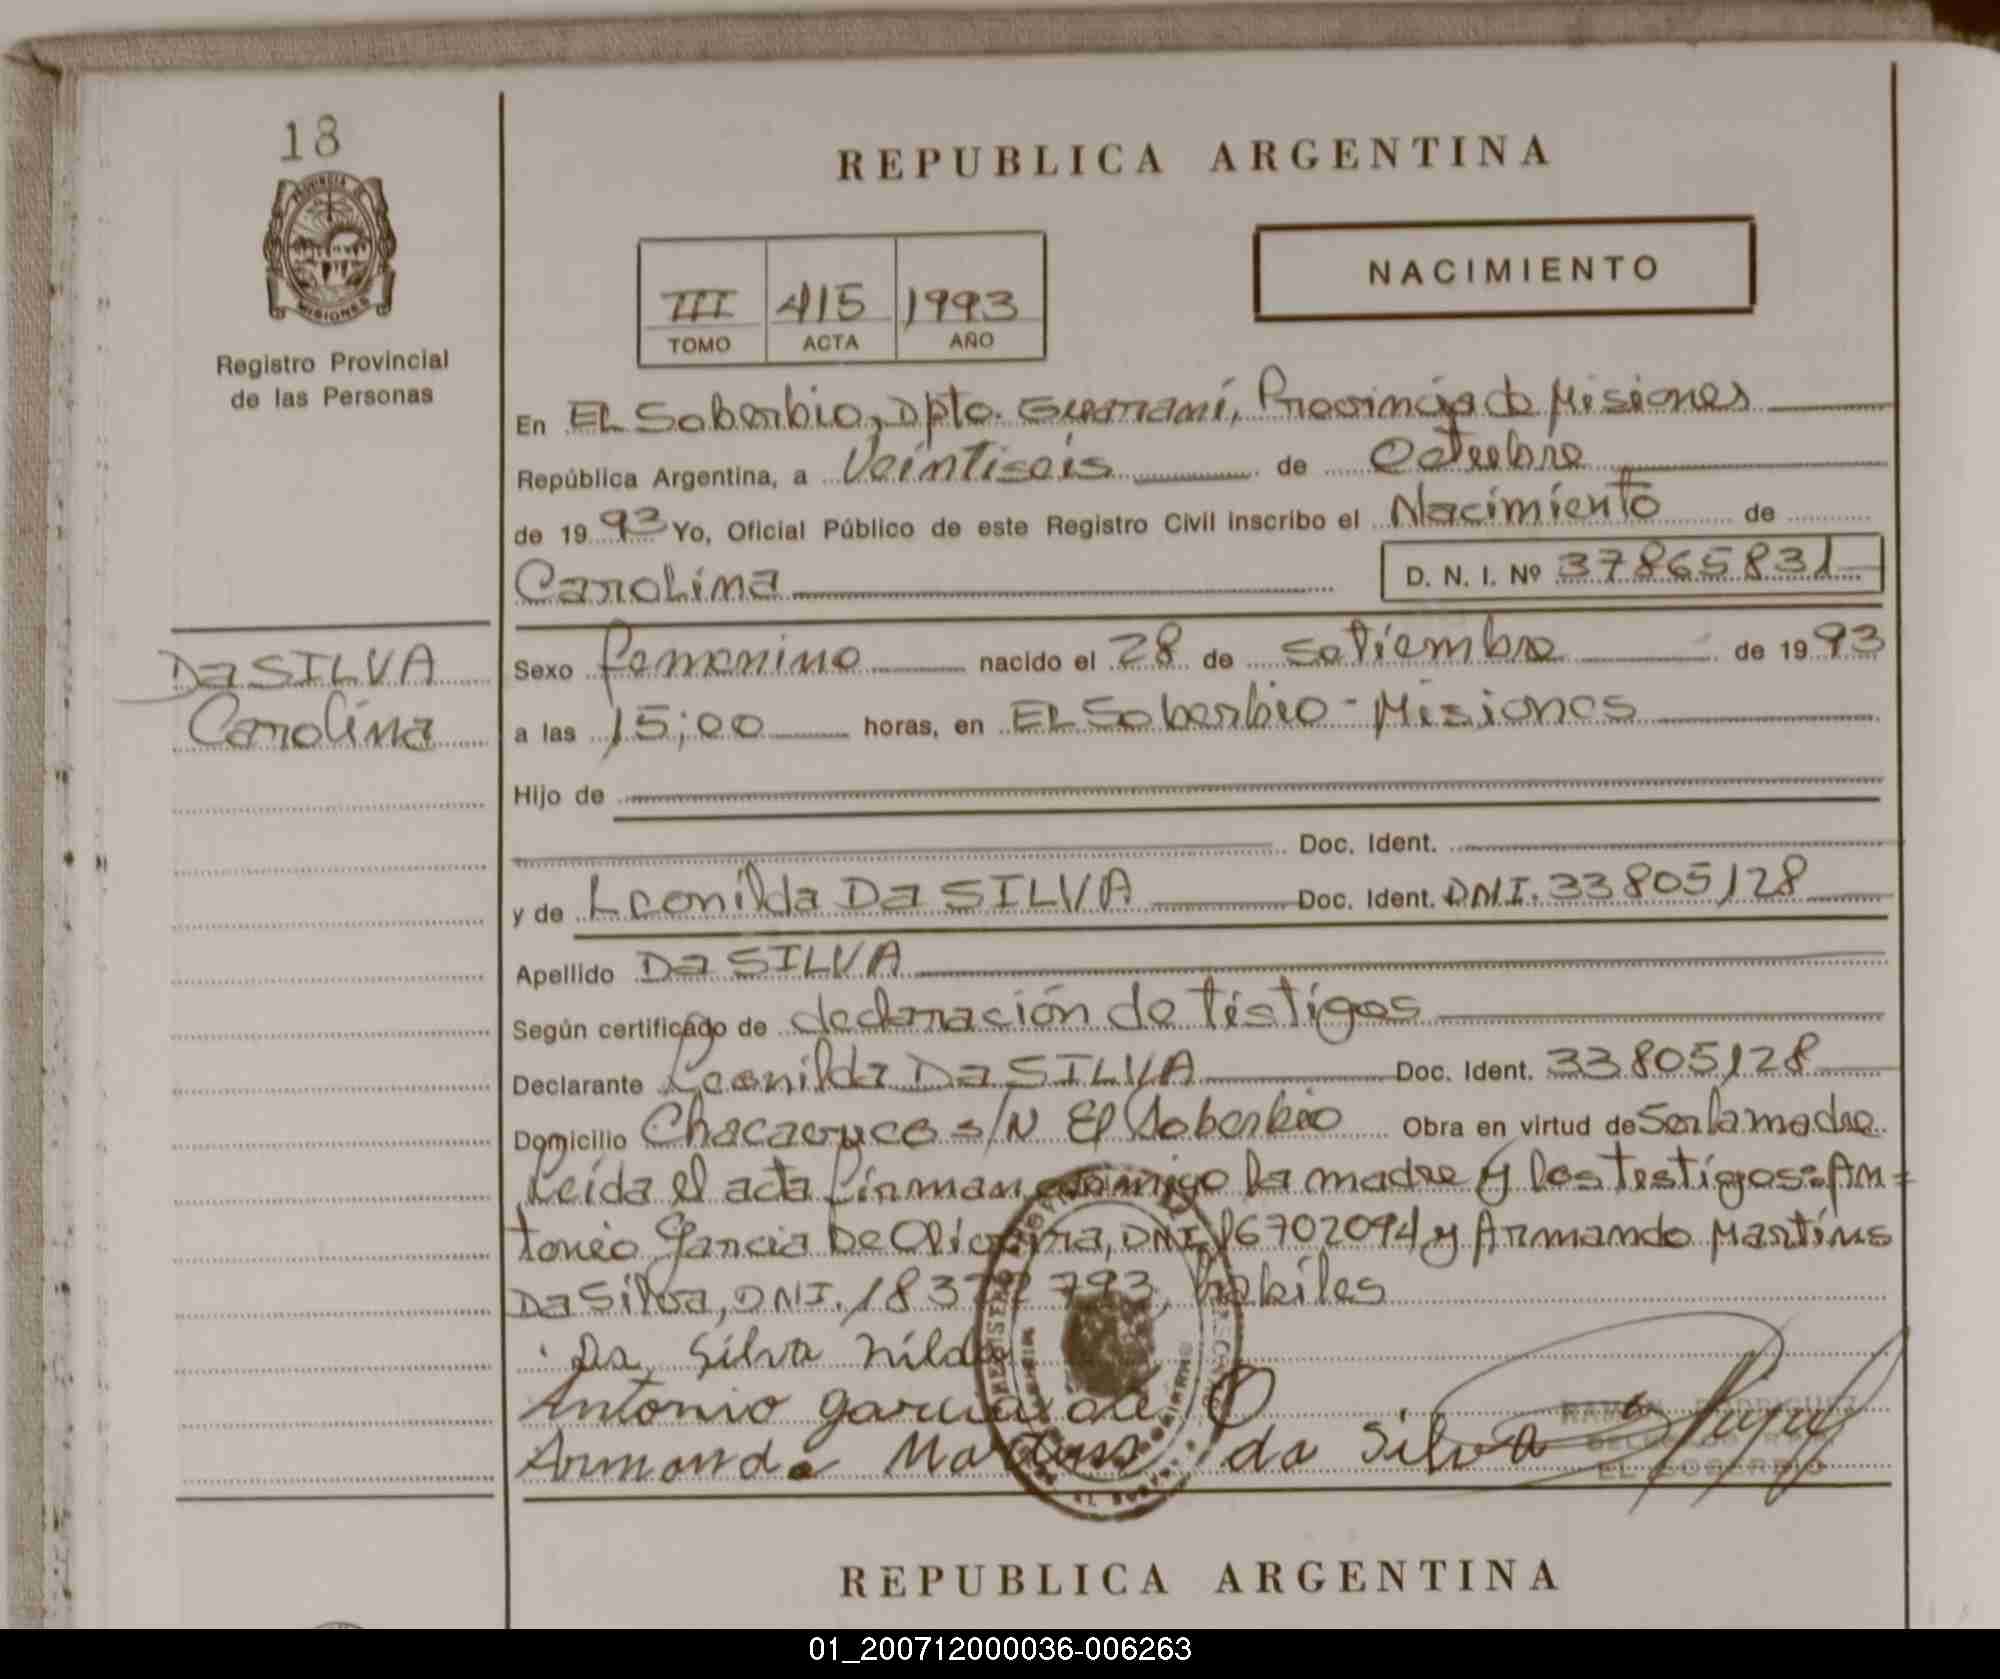 18
PROVINCIA DE
MISIONES
Registro Provincial
de las Personas
REPUBLICA ARGENTINA
III 415 1993
TOMO ACTA AÑO
NACIMIENTO
En EL Soberbio, Dpto. Guaraní, Provincia de Misiones
República Argentina, a Veintiseis de Octubre
de 1993 Yo, Oficial Público de este Registro Civil inscribo el Nacimiento de
Carolina D. N. I. Nº 37865831
Da SILVA
Carolina
Sexo femenino nacido el 28 de Setiembre de 1993
a las 15;00 horas, en EL Soberbio - Misiones
Hijo de
Doc. Ident.
y de Leonilda Da SILVA Doc. Ident. DNI. 33805128
Apellido Da SILVA
Según certificado de declaración de testigos
Declarante Leonilda Da SILVA Doc. Ident. 33805128
Domicilio s/N El Soberbio Obra en virtud de Ser la madre
Leída el acta firman conmigo la madre y los testigos: An=
tonio Garcia De Oliveira, DNI 16702094 y Armando Martins
Da Silva, DNI. 793, habiles
Da Silva nilda
Antonio garcia de O
Armando Martins da Silva
EL SOBERBIO
REPUBLICA ARGENTINA
01_200712000036-006263